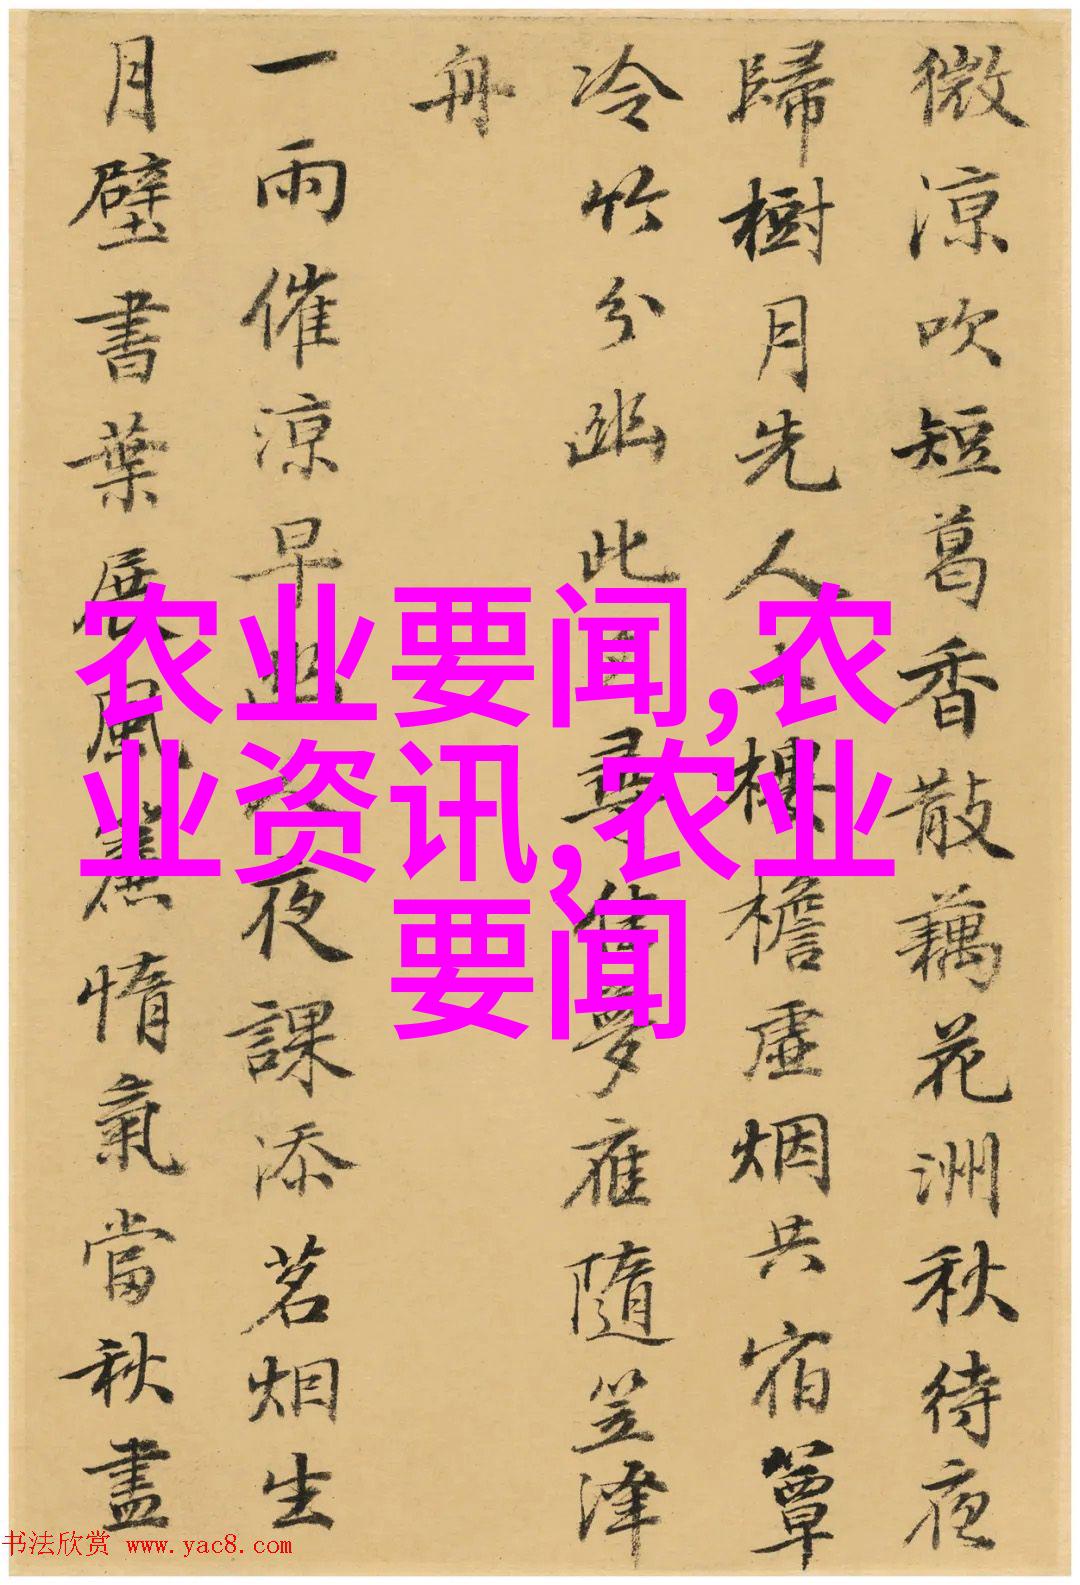 微涼吹短葛香散藕花洲秋待夜
歸樹月先人上樓檐虛烟共宿簟
冷竹分幽此尋夢雁隨笠澤
舟
一雨催涼早幽人夜課添茗烟生
月壁書葉展風簾惰氣當秋盡
农业要闻,农
业资讯,农业
要闻
书法欣赏 www.yac8.com